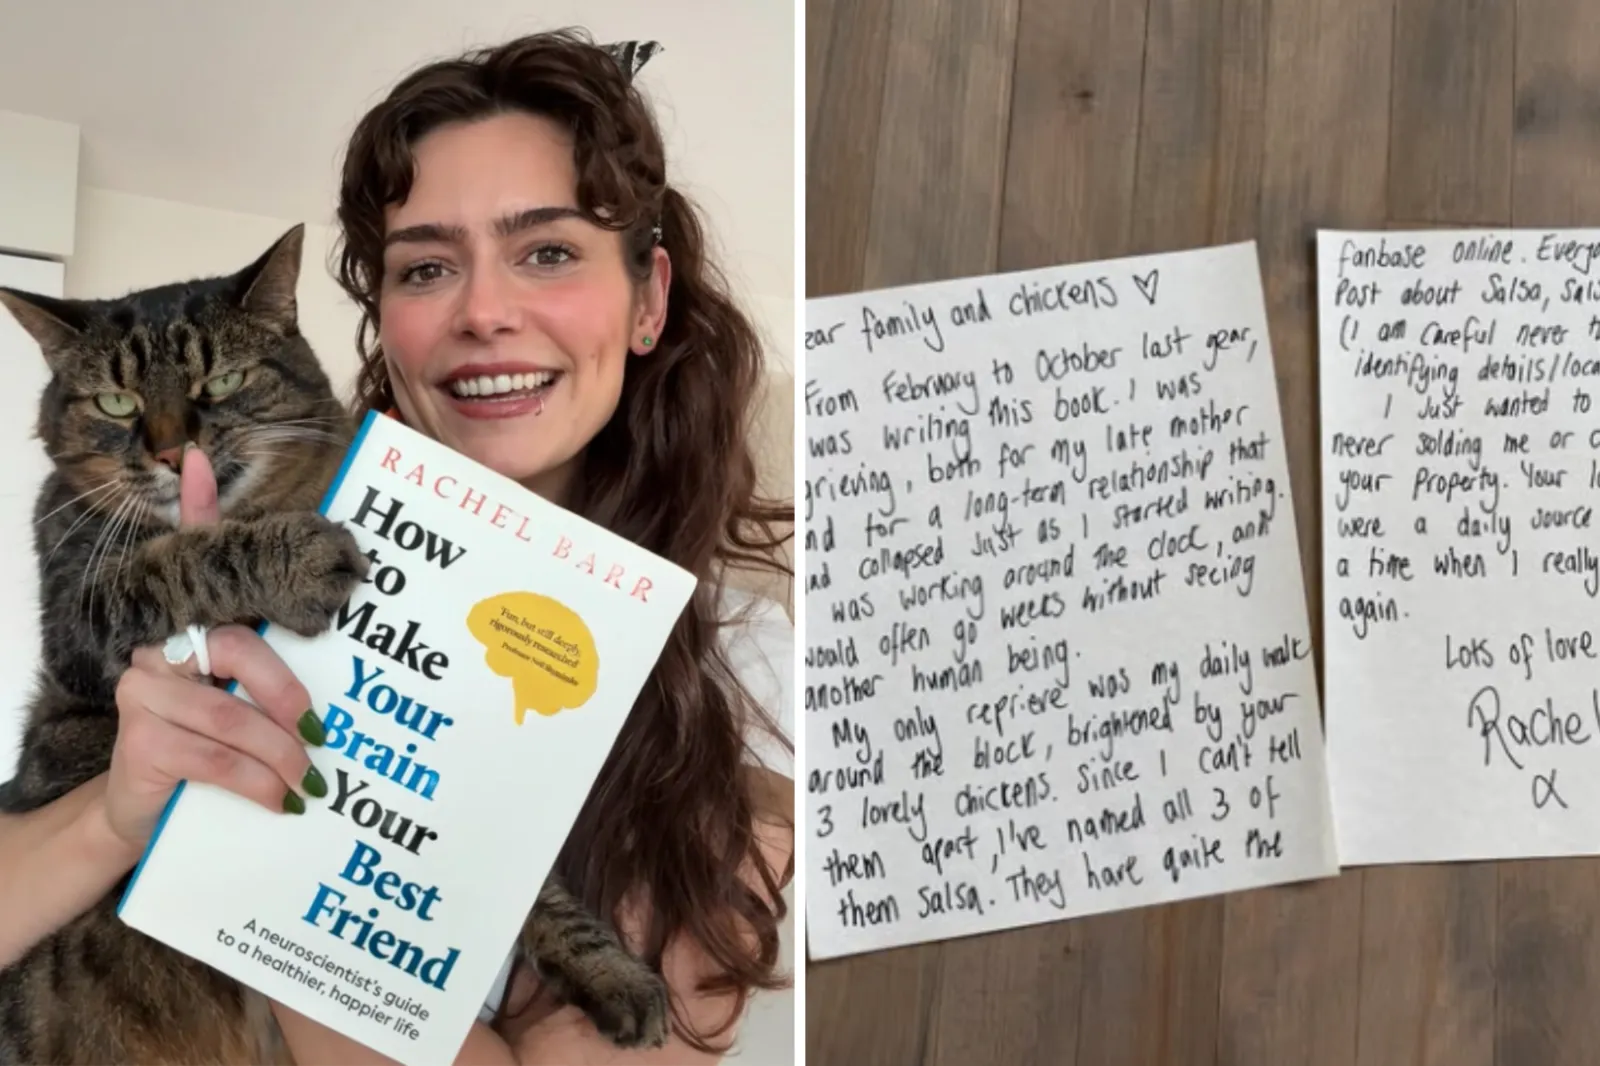 RACHEL BARR
How
to
Make
Your
Brain
Your
Best
Friend
'Fun, but still deeply,
rigorously researched'
Professor Neil
A neuroscientist's guide
to a healthier, happier life
ear family and chickens ♡
From February to October last year,
was writing this book. I was
grieving, both for my late mother
nd for a long-term relationship that
ad collapsed just as I started writing.
was working around the clock, and
would often go weeks without seeing
another human being.
My only reprieve was my daily walk
around the block, brightened by your
3 lovely chickens. Since I can't tell
them apart, I've named all 3 of
them Salsa. They have quite the
fanbase online. Everyo
Post about Salsa, Sals
(I am careful never t
identifying details/loca
I Just wanted to
never solding me or c
your Property. Your l
were a daily source
a time when I really
again.
Lots of love
Rachel
x